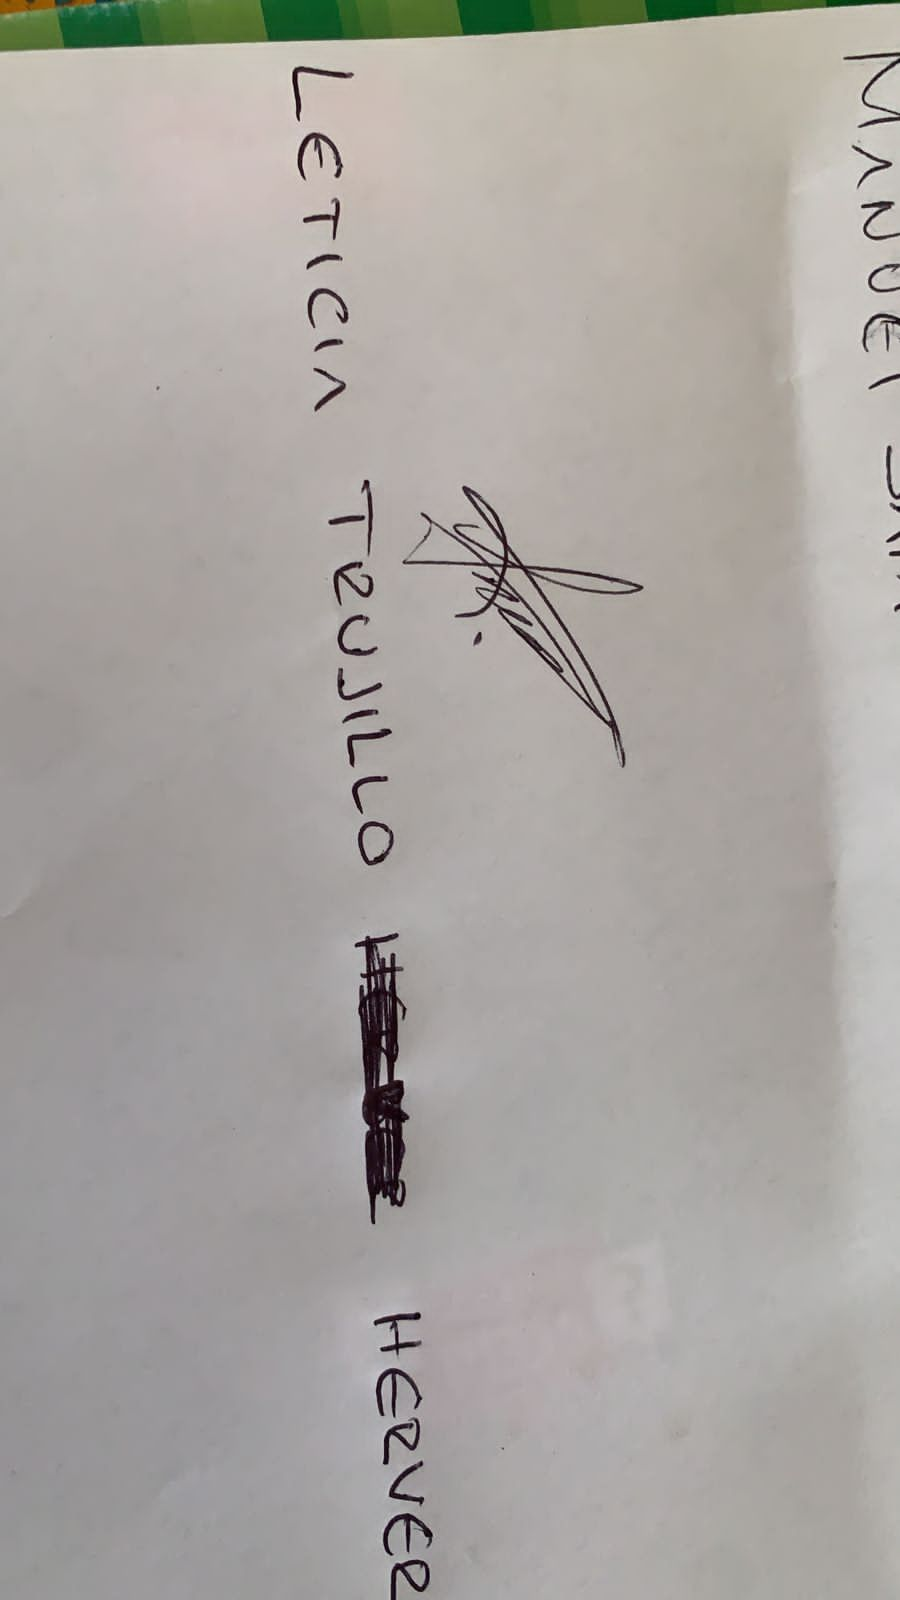 MANUEL
LETICIA TRUJILLO HERVER